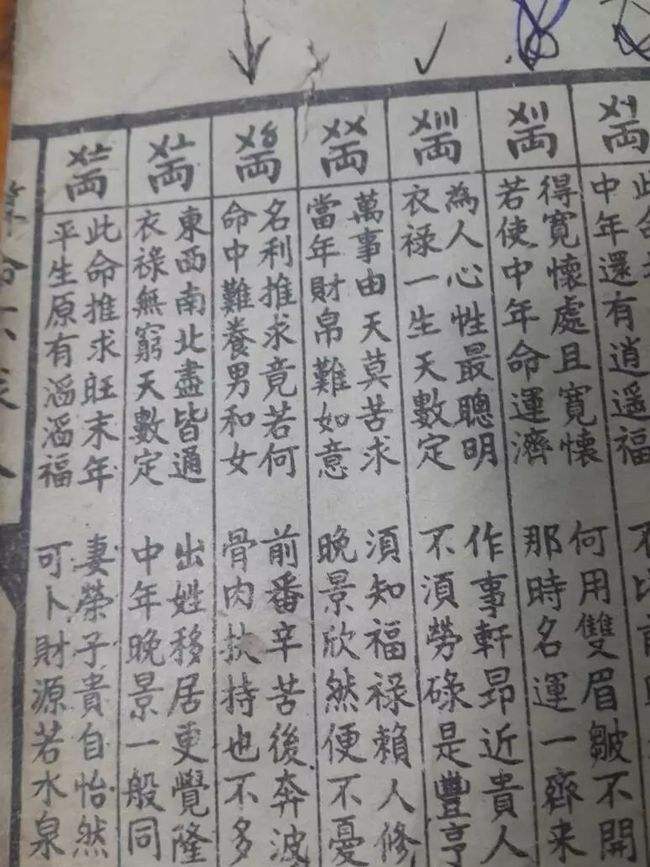 〤〡兩
中年還有逍遙福
〤〢兩
得寬懷處且寬懷 何用雙眉皺不開
若使中年命運濟 那時名運一齊來
〤〣兩
為人心性最聰明 作事軒昂近貴人
衣祿一生天數定 不須勞碌是豐亨
〤〤兩
萬事由天莫苦求 須知福祿賴人修
當年財帛難如意 晚景欣然便不憂
〤〥兩
名利推求竟若何 前番辛苦後奔波
命中難養男和女 骨肉扶持也不多
〤〦兩
東西南北盡皆通 出姓移居更覺隆
衣祿無窮天數定 中年晚景一般同
〤〧兩
此命推求旺末年 妻榮子貴自怡然
平生原有滔滔福 可卜財源若水泉